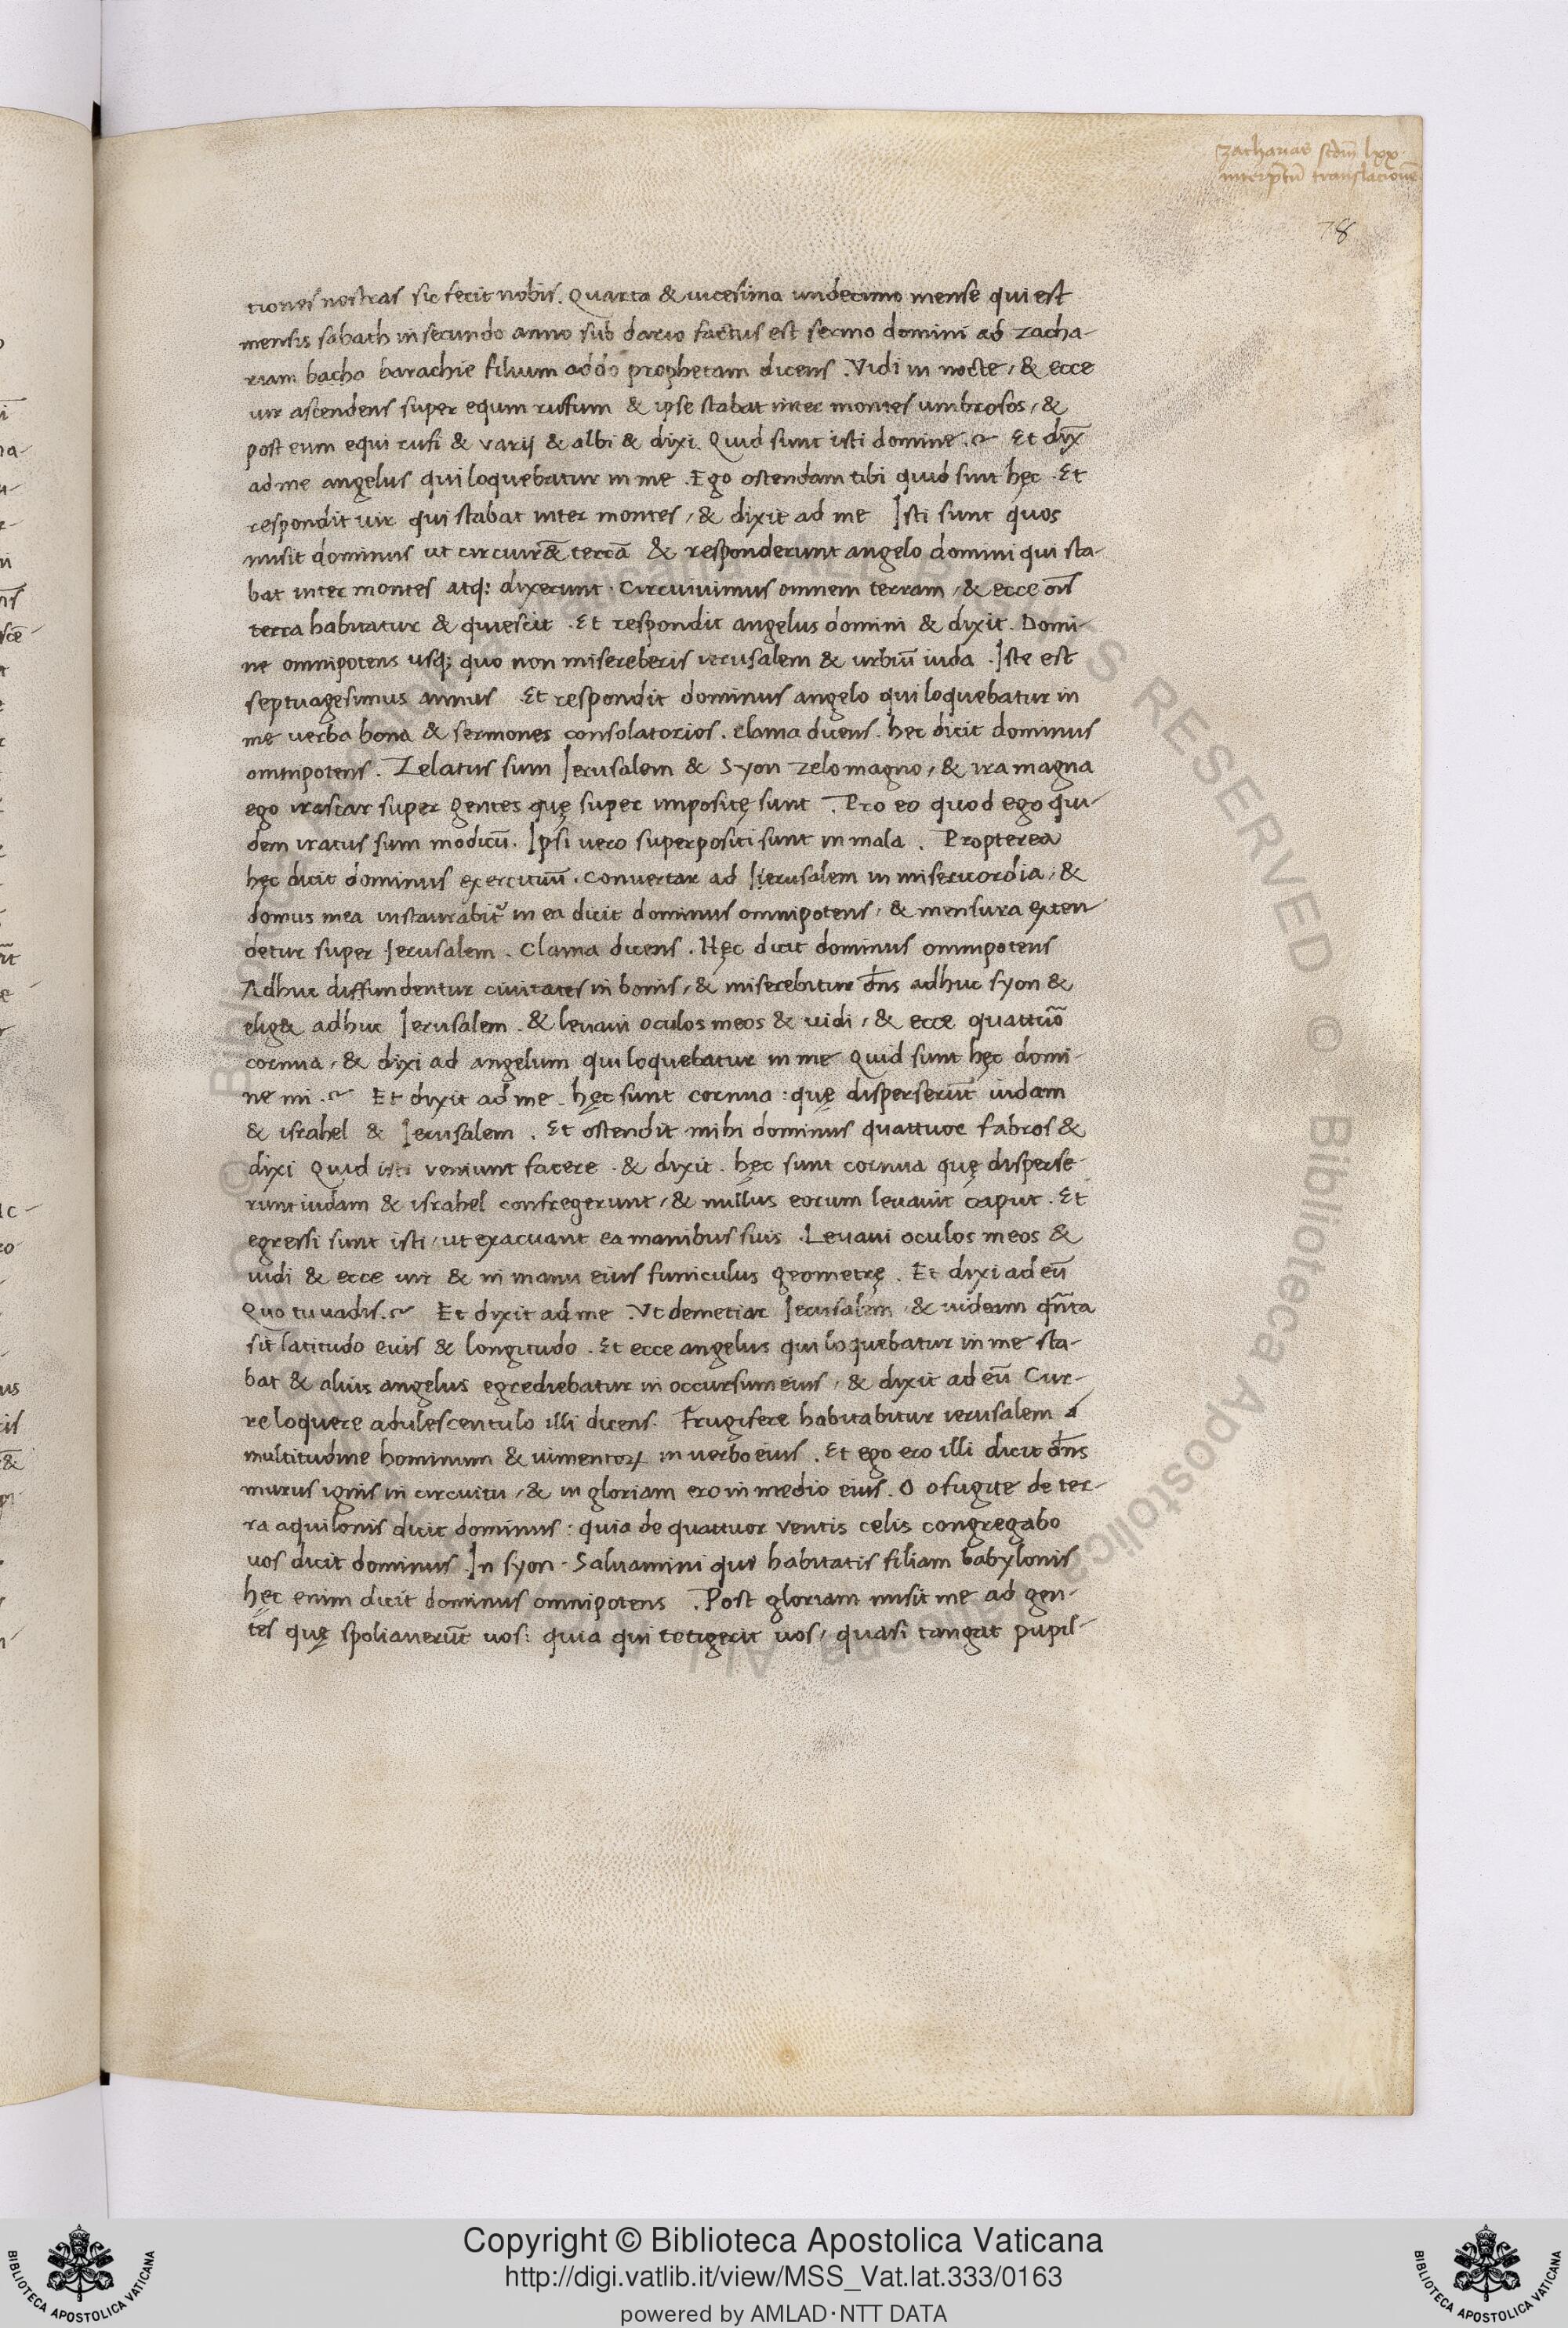 zacharias scdm lxx
interptu translatione
78
tiones nostras sic fecit nobis. Quarta & uicesima undecimo mense qui est
mensis sabath in secundo anno sub dario factus est sermo domini ad zacha-
riam bacho barachie filium addo prophetam dicens. Vidi in nocte, & ecce
uir ascendens super equm ruffum & ipse stabat inter montes umbrosos, &
post eum equi rufi & varij & albi & dixi. Quid sunt isti domine.? Et dix̄
ad me angelus qui loquebatur in me. Ego ostendam tibi quid sint hęc. Et
respondit uir qui stabat inter montes, & dixit ad me Isti sunt quos
misit dominus ut circuir&̄ terrā & responderunt angelo domini qui sta-
bat inter montes atq: dixerunt. Circuiuimus omnem terram, & ecce oīs
terra habitatur & quiescit. Et respondit angelus domini & dixit. Domi-
ne omnipotens usq; quo non misereberis ierusalem & urbiū iuda. Iste est
septuagesimus annus Et respondit dominus angelo qui loquebatur in
me uerba bona & sermones consolatorios. clama dicens. hec dicit dominus
omnipotens. Zelatus sum Ierusalem & Syon zelo magno, & ira magna
ego irascar super gentes quę super impositę sunt. Pro eo quod ego qui-
dem iratus sum modicū. Ipsi uero superpositi sunt in mala. Propterea
hęc dicit dominus exercituū. convertar ad Iierusalem in misericordia, &
domus mea instaurabit᷑ in ea dicit dominus omnipotens, & mensura exten
detur super Ierusalem. Clama dicens. Hęc dicit dominus omnipotens
Adhuc diffundentur ciuitates in bonis, & miserebitur dn̄s adhuc syon &
elig& adhuc Ierusalem. & leuaui oculos meos & uidi, & ecce quattuō
cornua, & dixi ad angelum qui loquebatur in me Quid sunt hęc domi-
ne mi.? Et dixit ad me. hęc sunt cornua: quę disperserūt iudam
& israhel & Ierusalem. Et ostendit mihi dominus quattuor fabros &
dixi Quid isti veniunt facere. & dixit. hęc sunt cornua quę disperse-
runt iudam & israhel confregerunt, & nullus eorum leuauit caput. Et
egressi sunt isti, ut exacuant ea manibus suis. Leuaui oculos meos &
uidi & ecce uir & in manu eius funiculus geometrę. Et dixi ad eū
Quo tu uadis.? Et dixit ad me. Vt demetiar Ierusalem & uideam qn̄ta
sit latitudo euis & longitudo. Et ecce angelus qui loquebatur in me sta-
bat & alius angelus egrediebatur in occursum eius, & dixit ad eū Cur-
re loquere adulescentulo illi dicens. Frugifere habitabitur ierusalem a
multitudine hominum & iumentoꝝ in verbo eius. Et ego ero illi dicit dn̄s
murus ignis in circuitu, & in gloriam ero in medio eius. O o fugite de ter-
ra aquilonis dicit dominus: quia de quattuor ventis celis congregabo
uos dicit dominus. In syon. Saluamini qui habitatis filiam babylonis
hęc enim dicit dominus omnipotens. Post gloriam misit me ad gen-
tes quę spoliauerūt uos: quia qui tetigerit uos, quasi tangat pupil-
Copyright © Biblioteca Apostolica Vaticana
http://digi.vatlib.it/view/MSS_Vat.lat.333/0163
powered by AMLAD·NTT DATA
BIBLIOTECA APOSTOLICA VATICANA
BIBLIOTECA APOSTOLICA VATICANA